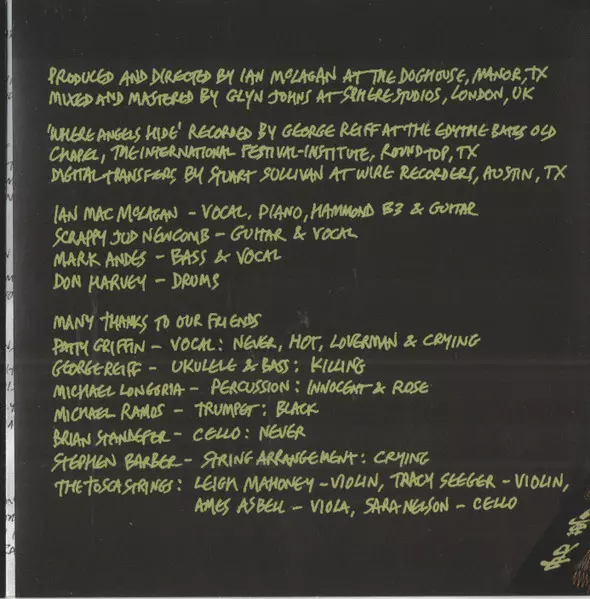 PRODUCED AND DIRECTED BY IAN McLAGAN AT THE DOGHOUSE, MANOR, TX
MIXED AND MASTERED BY GLYN JOHNS AT SPHERE STUDIOS, LONDON, UK
'WHERE ANGELS HIDE' RECORDED BY GEORGE REIFF AT THE EDYTHE BATES OLD
CHAPEL, THE INTERNATIONAL FESTIVAL-INSTITUTE, ROUND TOP, TX
DIGITAL TRANSFERS BY STUART SULLIVAN AT WIRE RECORDERS, AUSTIN, TX
IAN MAC McLAGAN - VOCAL, PIANO, HAMMOND B3 & GUITAR
SCRAPPY JUD NEWCOMB - GUITAR & VOCAL
MARK ANDES - BASS & VOCAL
DON HARVEY - DRUMS
MANY THANKS TO OUR FRIENDS
PATTY GRIFFIN - VOCAL: NEVER, HOT, LOVERMAN & CRYING
GEORGE REIFF - UKULELE & BASS: KILLING
MICHAEL LONGORIA - PERCUSSION: INNOCENT & ROSE
MICHAEL RAMOS - TRUMPET: BLACK
BRIAN STANDEFER - CELLO: NEVER
STEPHEN BARBER - STRING ARRANGEMENT: CRYING
THE TOSCA STRINGS: LEIGH MAHONEY - VIOLIN, TRACY SEEGER - VIOLIN,
AMES ASBELL - VIOLA, SARA NELSON - CELLO